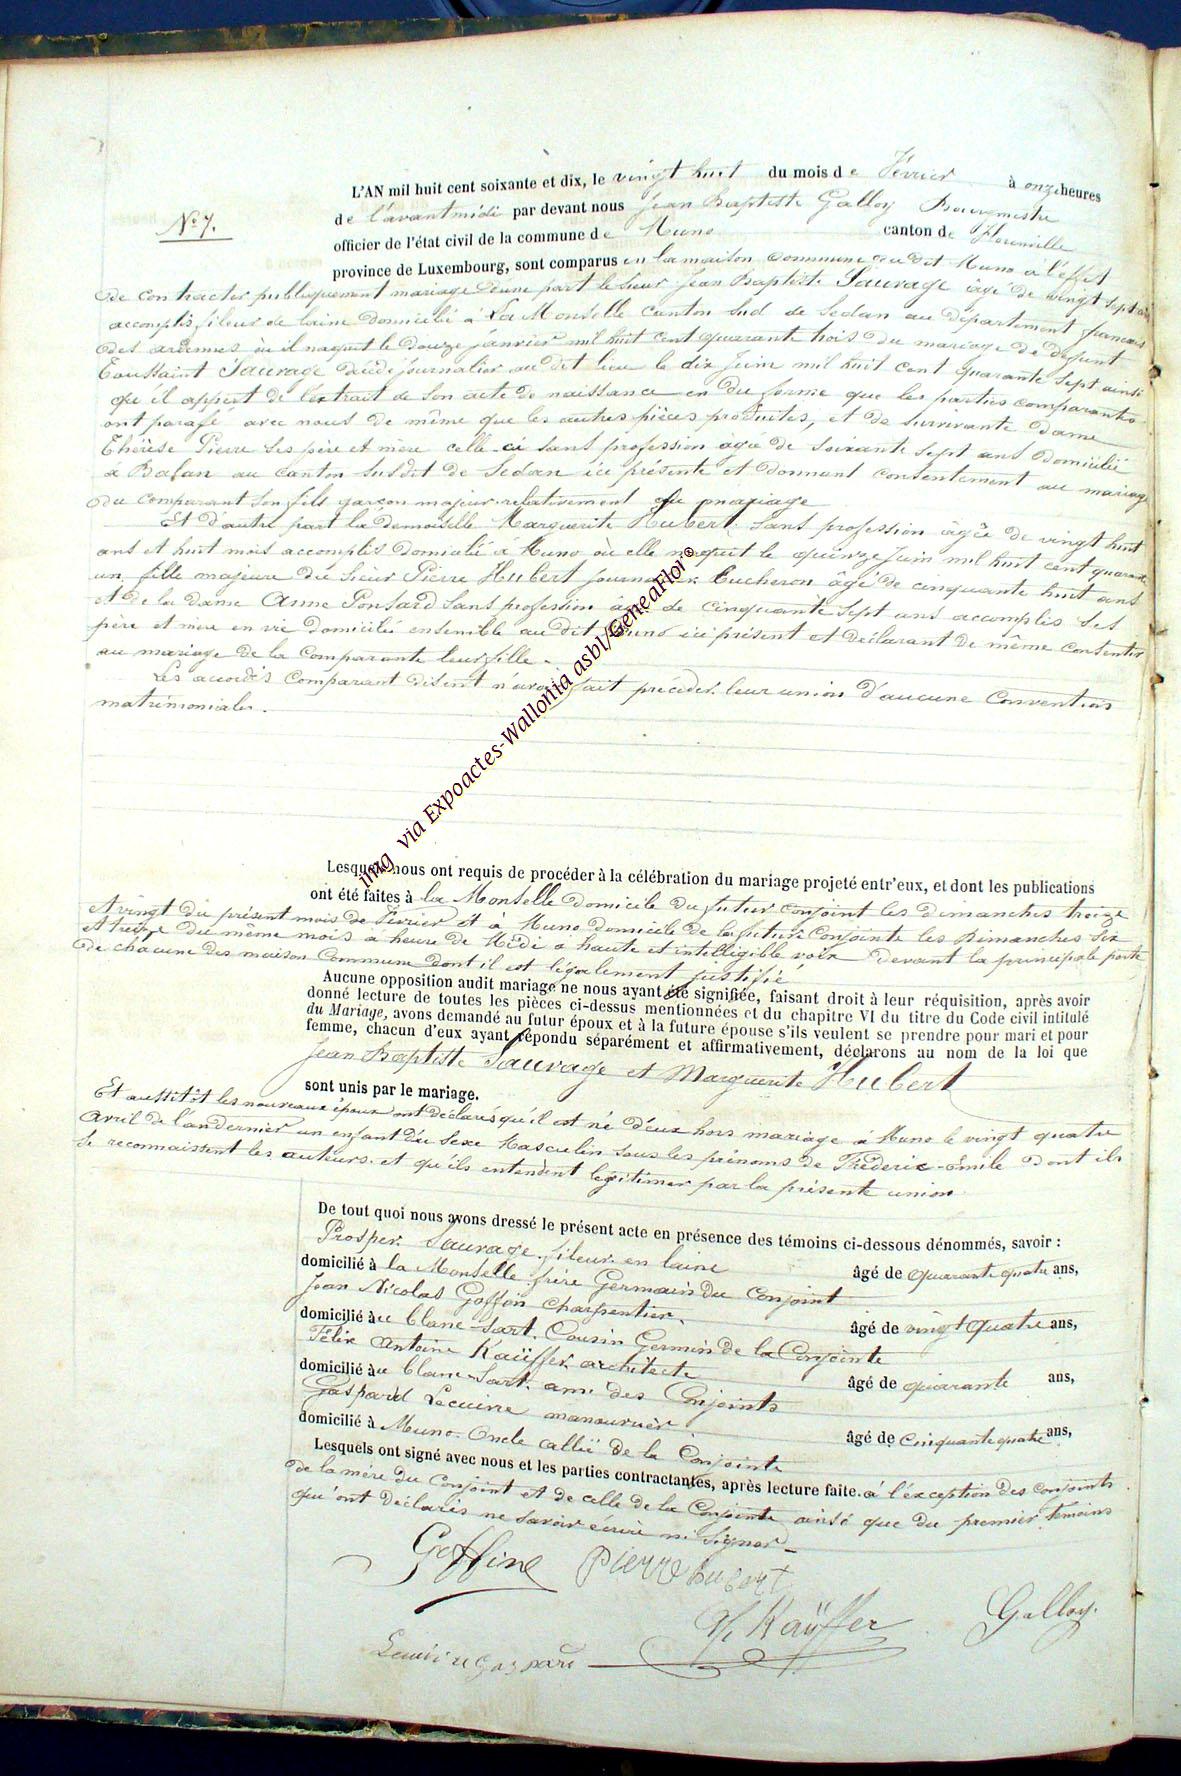 L'AN mil huit cent soixante et dix, le vingt huit du mois de Février à onze heures
N° 7.
de l'avant midi par devant nous Jean Baptiste Galloy Bourgmestre
officier de l'état civil de la commune de Muno canton de Florenville
province de Luxembourg, sont comparus en la maison commune du dit Muno à l'effet
de contracter publiquement mariage d'une part le sieur Jean Baptiste Sauvage âgé de vingt sept ans
accomplis fileur de laine domicilié à La Monselle canton sud de Sedan au département français
des ardennes où il naquit le douze janvier mil huit cent quarante trois du mariage de défunt
Toussaint Sauvage décédé journalier au dit lieu le dix Juin mil huit cent quarante sept ainsi
qu'il appert de l'extrait de son acte de naissance en du forme que les parties comparantes
ont parafé avec nous de même que les autres pièces produites, et de survivante dame
Thérèse Pierre ses père et mère celle-ci sans profession âgée de soixante sept ans domicilié
à Balan au canton susdit de Sedan ici présente et donnant consentement au mariage
du comparant son fils garçon majeur relativement au mariage
Et d'autre part la demoiselle Marguerite Hubert sans profession âgée de vingt huit
ans et huit mois accomplis domicilié à Muno où elle naquit le quinze Juin mil huit cent quarante
un, fille majeure du sieur Pierre Hubert journalier Bucheron âgé de cinquante huit ans
et de la dame Anne Ponsard sans profession âgée de cinquante sept ans accomplis ses
père et mère en vie domiciliés ensemble au dit Muno ici présent et déclarant de même consentir
au mariage de la comparante leur fille.
Les accordés comparant disent n'avoir fait précéder leur union d'aucune conventions
matrimoniales.
Lesquels nous ont requis de procéder à la célébration du mariage projeté entr'eux, et dont les publications
ont été faites à la Monselle domicile du futur conjoint les dimanches treize
et vingt du présent mois de Février et à Muno domicile de la future conjointe les Dimanches six
et treize du même mois à heure de Midi à haute et intelligible voix devant la principale porte
de chacune des maison commune dont il est légalement justifié
Aucune opposition audit mariage ne nous ayant été signifiée, faisant droit à leur réquisition, après avoir
donné lecture de toutes les pièces ci-dessus mentionnées et du chapitre VI du titre du Code civil intitulé
du Mariage, avons demandé au futur époux et à la future épouse s'ils veulent se prendre pour mari et pour
femme, chacun d'eux ayant répondu séparément et affirmativement, déclarons au nom de la loi que
Jean Baptiste Sauvage et Marguerite Hubert
sont unis par le mariage.
Et aussitôt les nouveaux époux ont déclarés qu'il est né d'eux hors mariage à Muno le vingt quatre
avril de l'an dernier un enfant du sexe Masculin sous les prénoms de Fréderic-Emile dont ils
se reconnaissent les auteurs et qu'ils entendent légitimer par la présente union.
De tout quoi nous avons dressé le présent acte en présence des témoins ci-dessous dénommés, savoir :
Prosper Sauvage fileur en laine
domicilié à la Monselle frère Germain du conjoint âgé de quarante quatre ans,
Jean Nicolas Goffin charpentier.
domicilié au blanc-Sart. Cousin Germin de la Conjointe âgé de vingt quatre ans,
Félix Antoine Kaüffer architecte
domicilié au blanc-Sart. ami des Conjoints âgé de quarante ans,
Gaspard Lecuivre manouvrier
domicilié à Muno. Oncle allié de la Conjointe âgé de cinquante quatre ans,
Lesquels ont signé avec nous et les parties contractantes, après lecture faite. à l'exception des conjoints
de la mère du Conjoint et de celle de la Conjointe ainsi que du premier témoins
qu'ont déclarés ne savoir écrire ni signer
Goffine Pierre hubert
Kaÿffer Galloy.
Gaspard
img via Expoactes-Wallonia asbl/GeneaFloi®